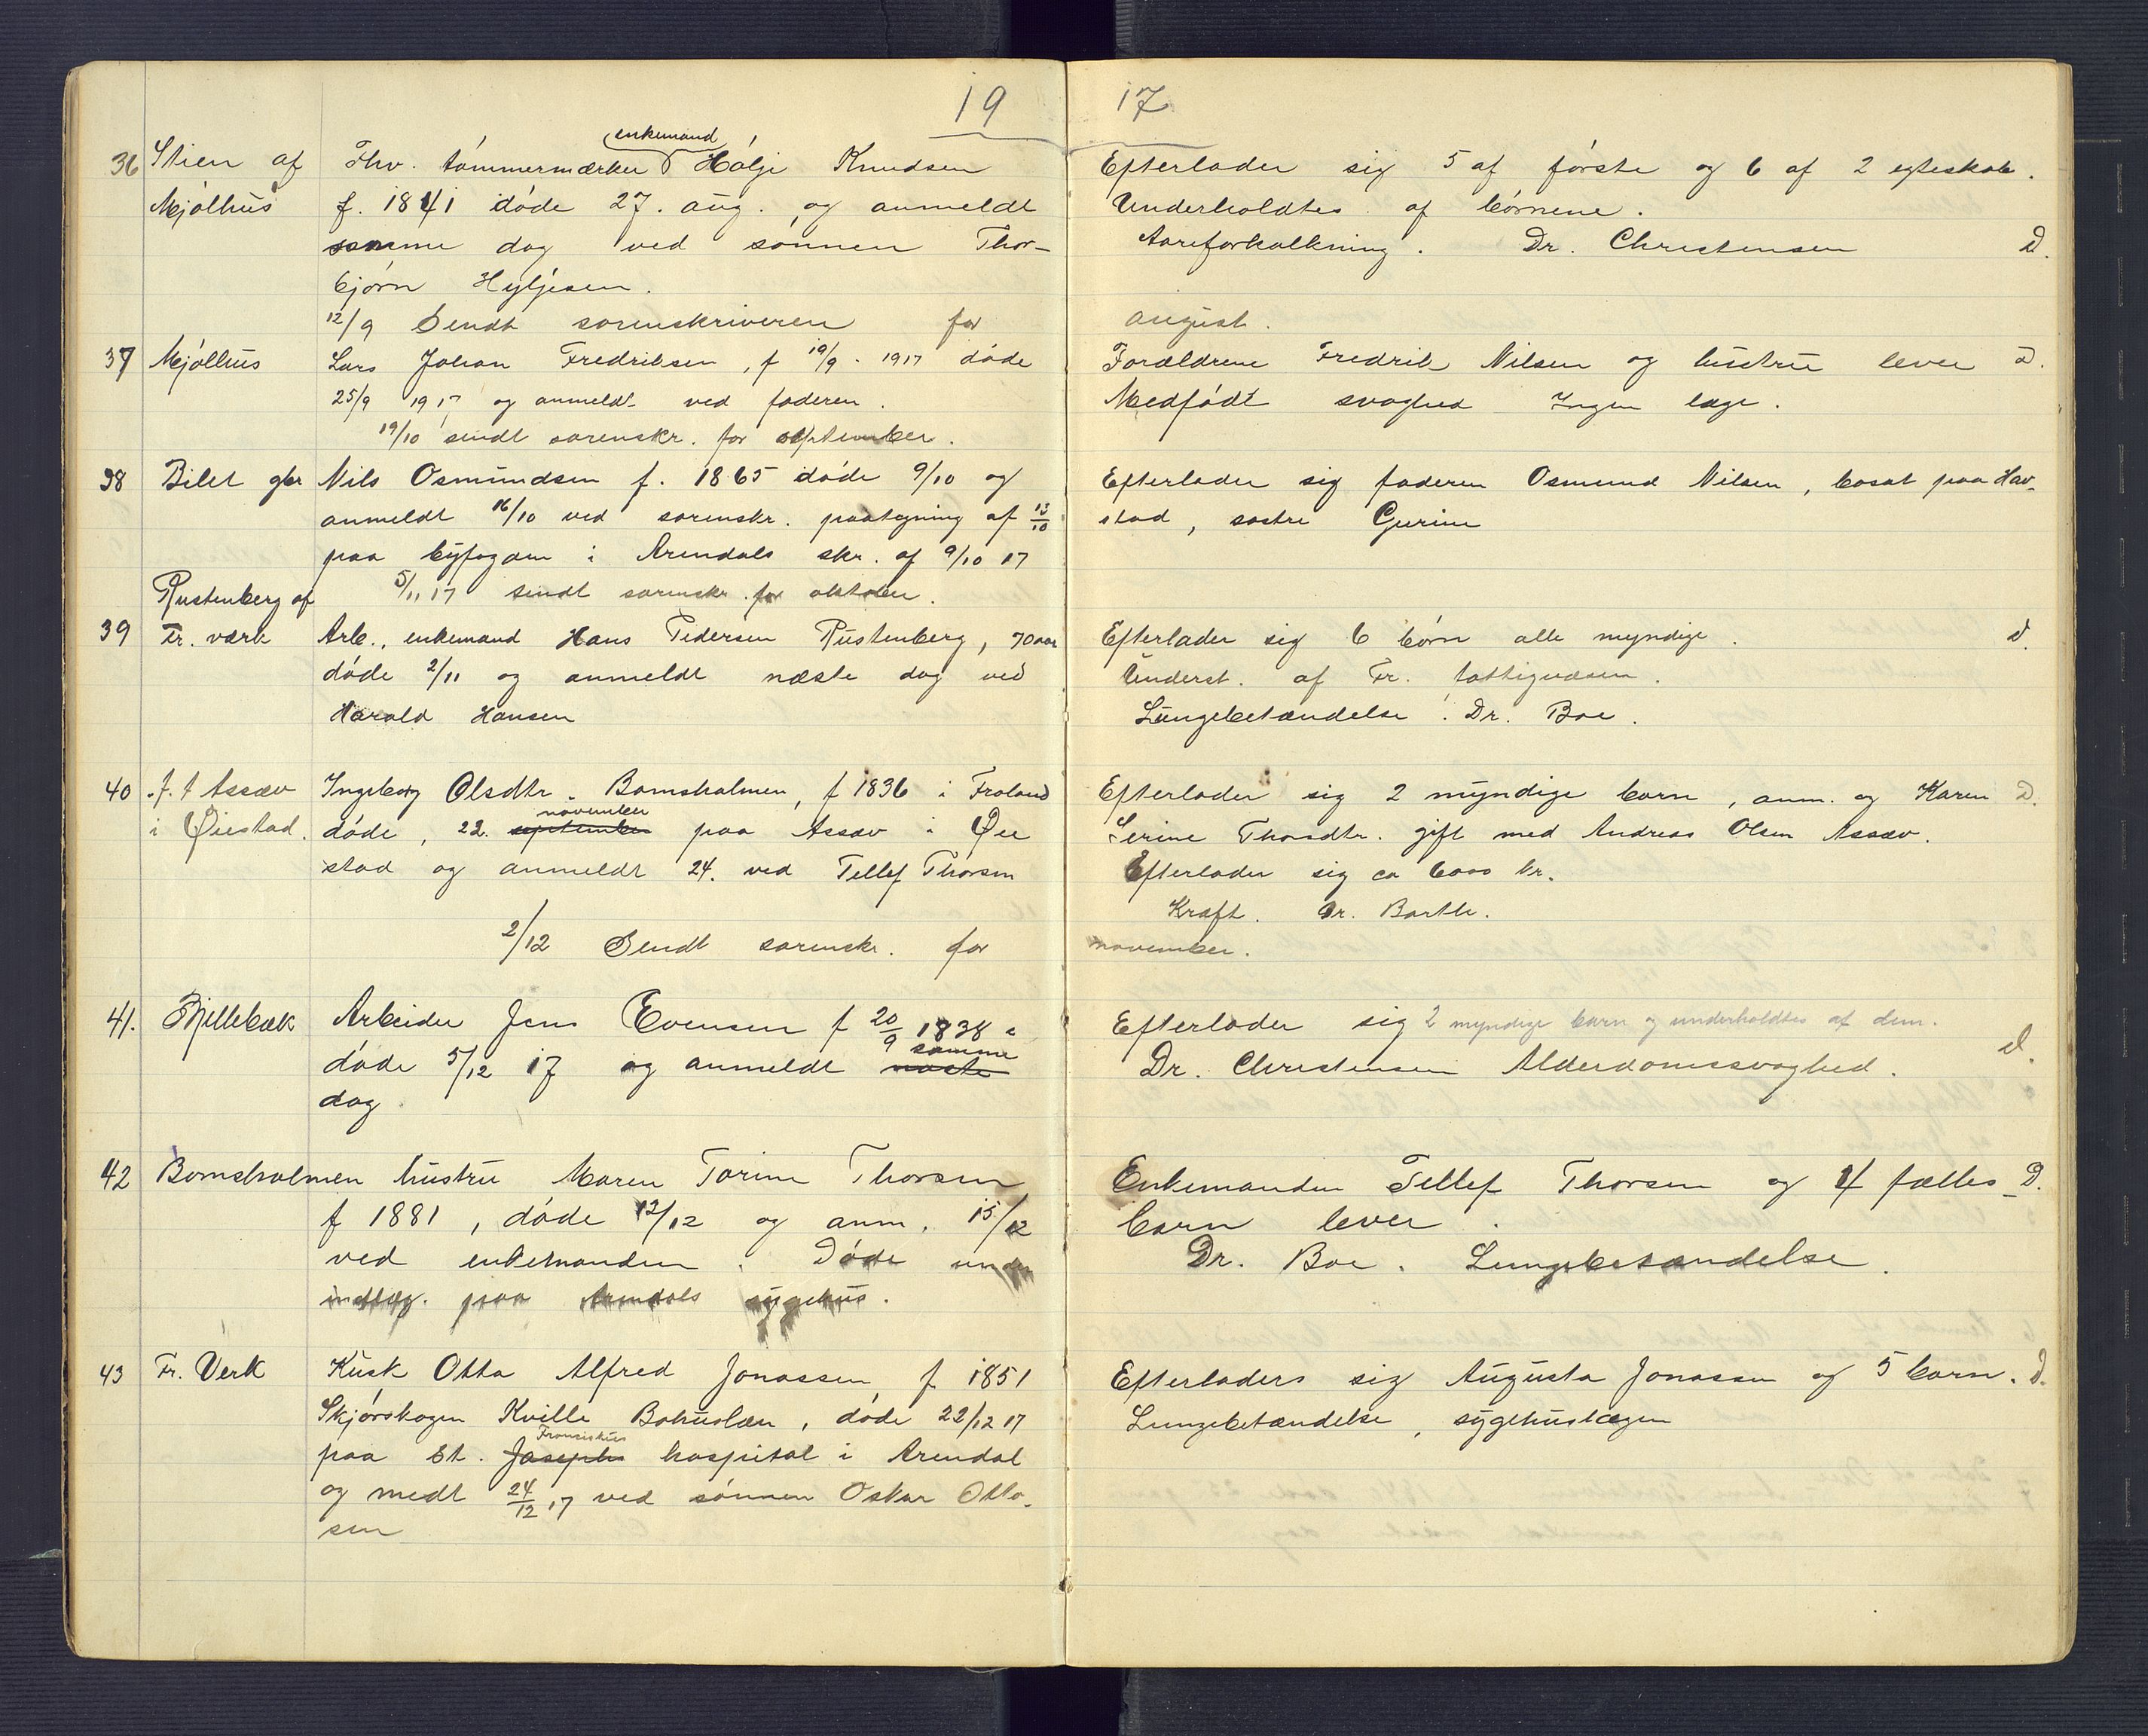 19 17
36 Stien af Fhv. tømmermærker enkemand Hølje Knudsen
Mjølhus f. 1841 døde 27. aug. og anmeldt
samme dag ved sønnen Thor-
bjørn Hyljesen.
12/9 Sendt sorenskriveren for
37 Mjølhus Lars Johan Fredriksen, f 19/9 1917 døde
25/9 1917 og anmeldt ved faderen.
19/10 sendt sorenskr. for september.
38 Bilet gbr Nils Osmundsen f. 1865 døde 9/10 og
anmeldt 16/10 ved sorenskr. paategning af 13/10
paa byfogden i Arendals skr. af 9/10 17
Rustenberg af 5/11 17 sendt sorenskr. for oktober.
39 Fr. værk Arb., enkemand Hans Pedersen Rustenberg, 70 aar
døde 2/11 og anmeldt næste dag ved
Harald Hansen
40 f. t Assæv Ingeborg Olsdtr. Bomsholmen, f 1836 i Froland
i Øiestad. døde, 22. september november paa Assæv i Øie
stad og anmeldt 24. ved Tellef Thorsen
2/12 Sendt sorenskr. for
41. Bjellebæk Arbeider Jens Evensen f 20/9 1838
døde 5/12 17 og anmeldt næste samme
dag.
42 Bomsholmen hustru Maren Torine Thorsen
f 1881, døde 12/12 og anm. 15/12
ved enkemanden. Døde under
indlæg. paa Arendals sygehus.
43 Fr. Verk Kusk Otto Alfred Jonassen f 1851
Skjørskogen Kville Bohuslæn, døde 22/12 17
paa St. Josephs Fransiskus hospital i Arendal
og medt 24/12 17 ved sønnen Oskar Otto-
sen
Efterlader sig 5 af første og 6 af 2 egteskab.
Underholdtes af børnene.
Aareforkalkning. Dr. Christensen D.
august.
Forældrene Fredrik Nilsen og hustru lever D.
Medfødt svaghed Ingen læge.
Efterlader sig faderen Osmund Nilsen, bosat paa Hav-
stad, søstre Gurine
Efterlader sig 6 børn alle myndige. D.
Underst. af Fr. fattigvæsen.
Lungebetændelse. Dr. Boe.
Efterlader sig 2 myndige børn, anm. og Karen D.
Serine Thorsdtr. gift med Andreas Olsen Assæv.
Efterlader sig ca 6000 kr.
Kræft. Dr. Barth.
november.
Efterlader sig 2 myndige børn og underholdtes af dem.
Dr. Christensen Alderdomssvaghed. D.
Enkemanden Tellef Thorsen og 4 fælles D.
børn lever.
Dr. Boe. Lungebetændelse.
Efterladers sig Augusta Jonassen og 5 børn. D.
Lungebetændelse, sygehuslægen